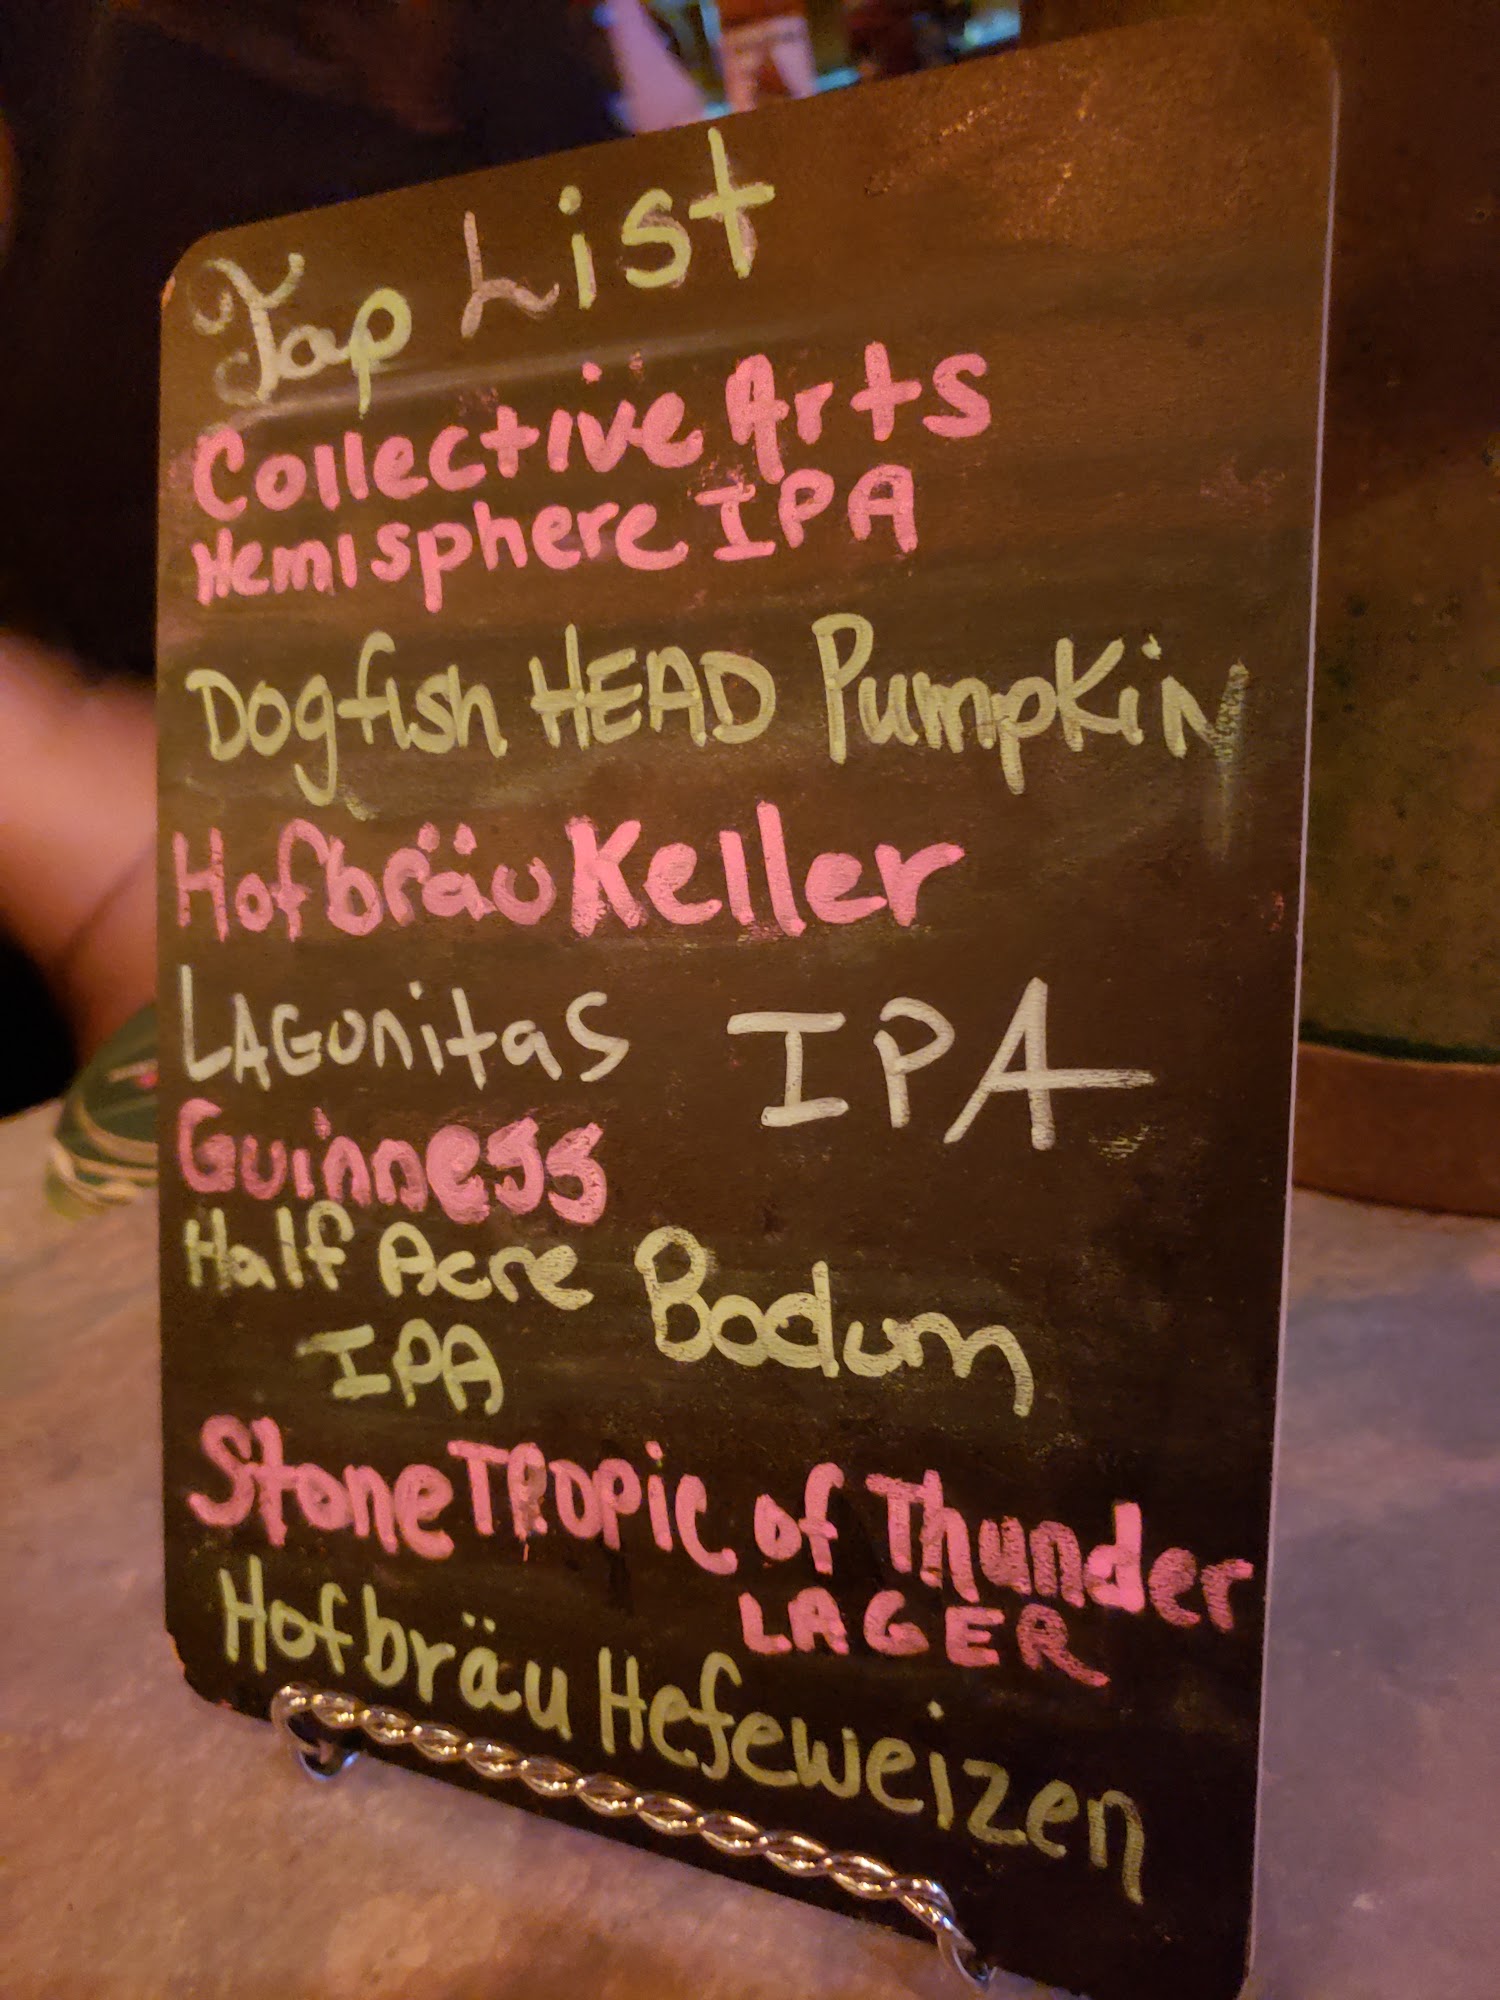 Tap List
Collective Arts
Hemisphere IPA
Dogfish HEAD Pumpkin
Hofbräu Keller
LAGunitas IPA
Guinness
Half Acre Bodum
IPA
Stone TROPic of Thunder
LAGER
Hofbräu Hefeweizen